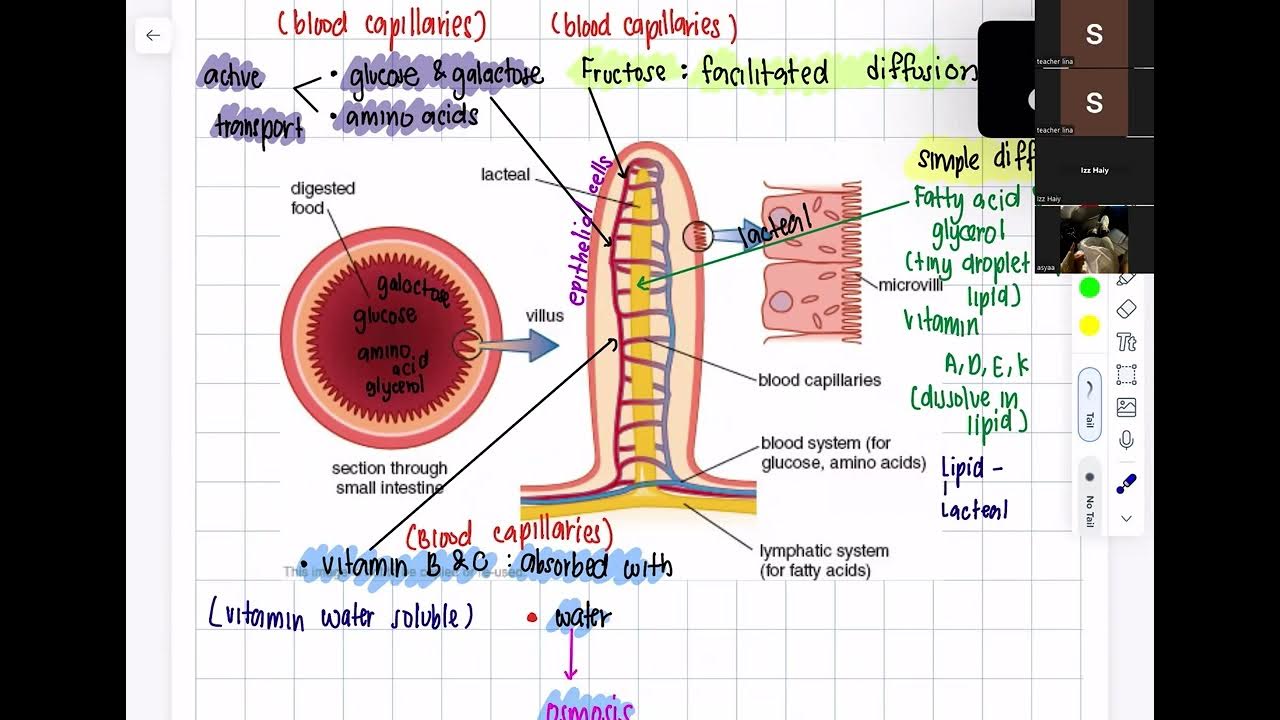 (blood capillaries)
(blood capillaries)
active
transport
• glucose & galactose
• amino acids
Fructose : facilitated diffusion
S
teacher lina
S
teacher lina
Izz Haiy
Izz Haiy
asyaa
simple diff
Fatty acid
glycerol
(tiny droplet
lipid)
vitamin
A, D, E, K
(dissolve in
lipid)
Lipid -
Lacteal
epithelial cells
lacteal
digested
food
galactose
glucose
amino
acid
glycerol
villus
section through
small intestine
lacteal
microvilli
blood capillaries
blood system (for
glucose, amino acids)
lymphatic system
(for fatty acids)
(Blood capillaries)
• vitamin B & C : absorbed with
(vitamin water soluble)
• water
osmosis
Tt
Tail
No Tail